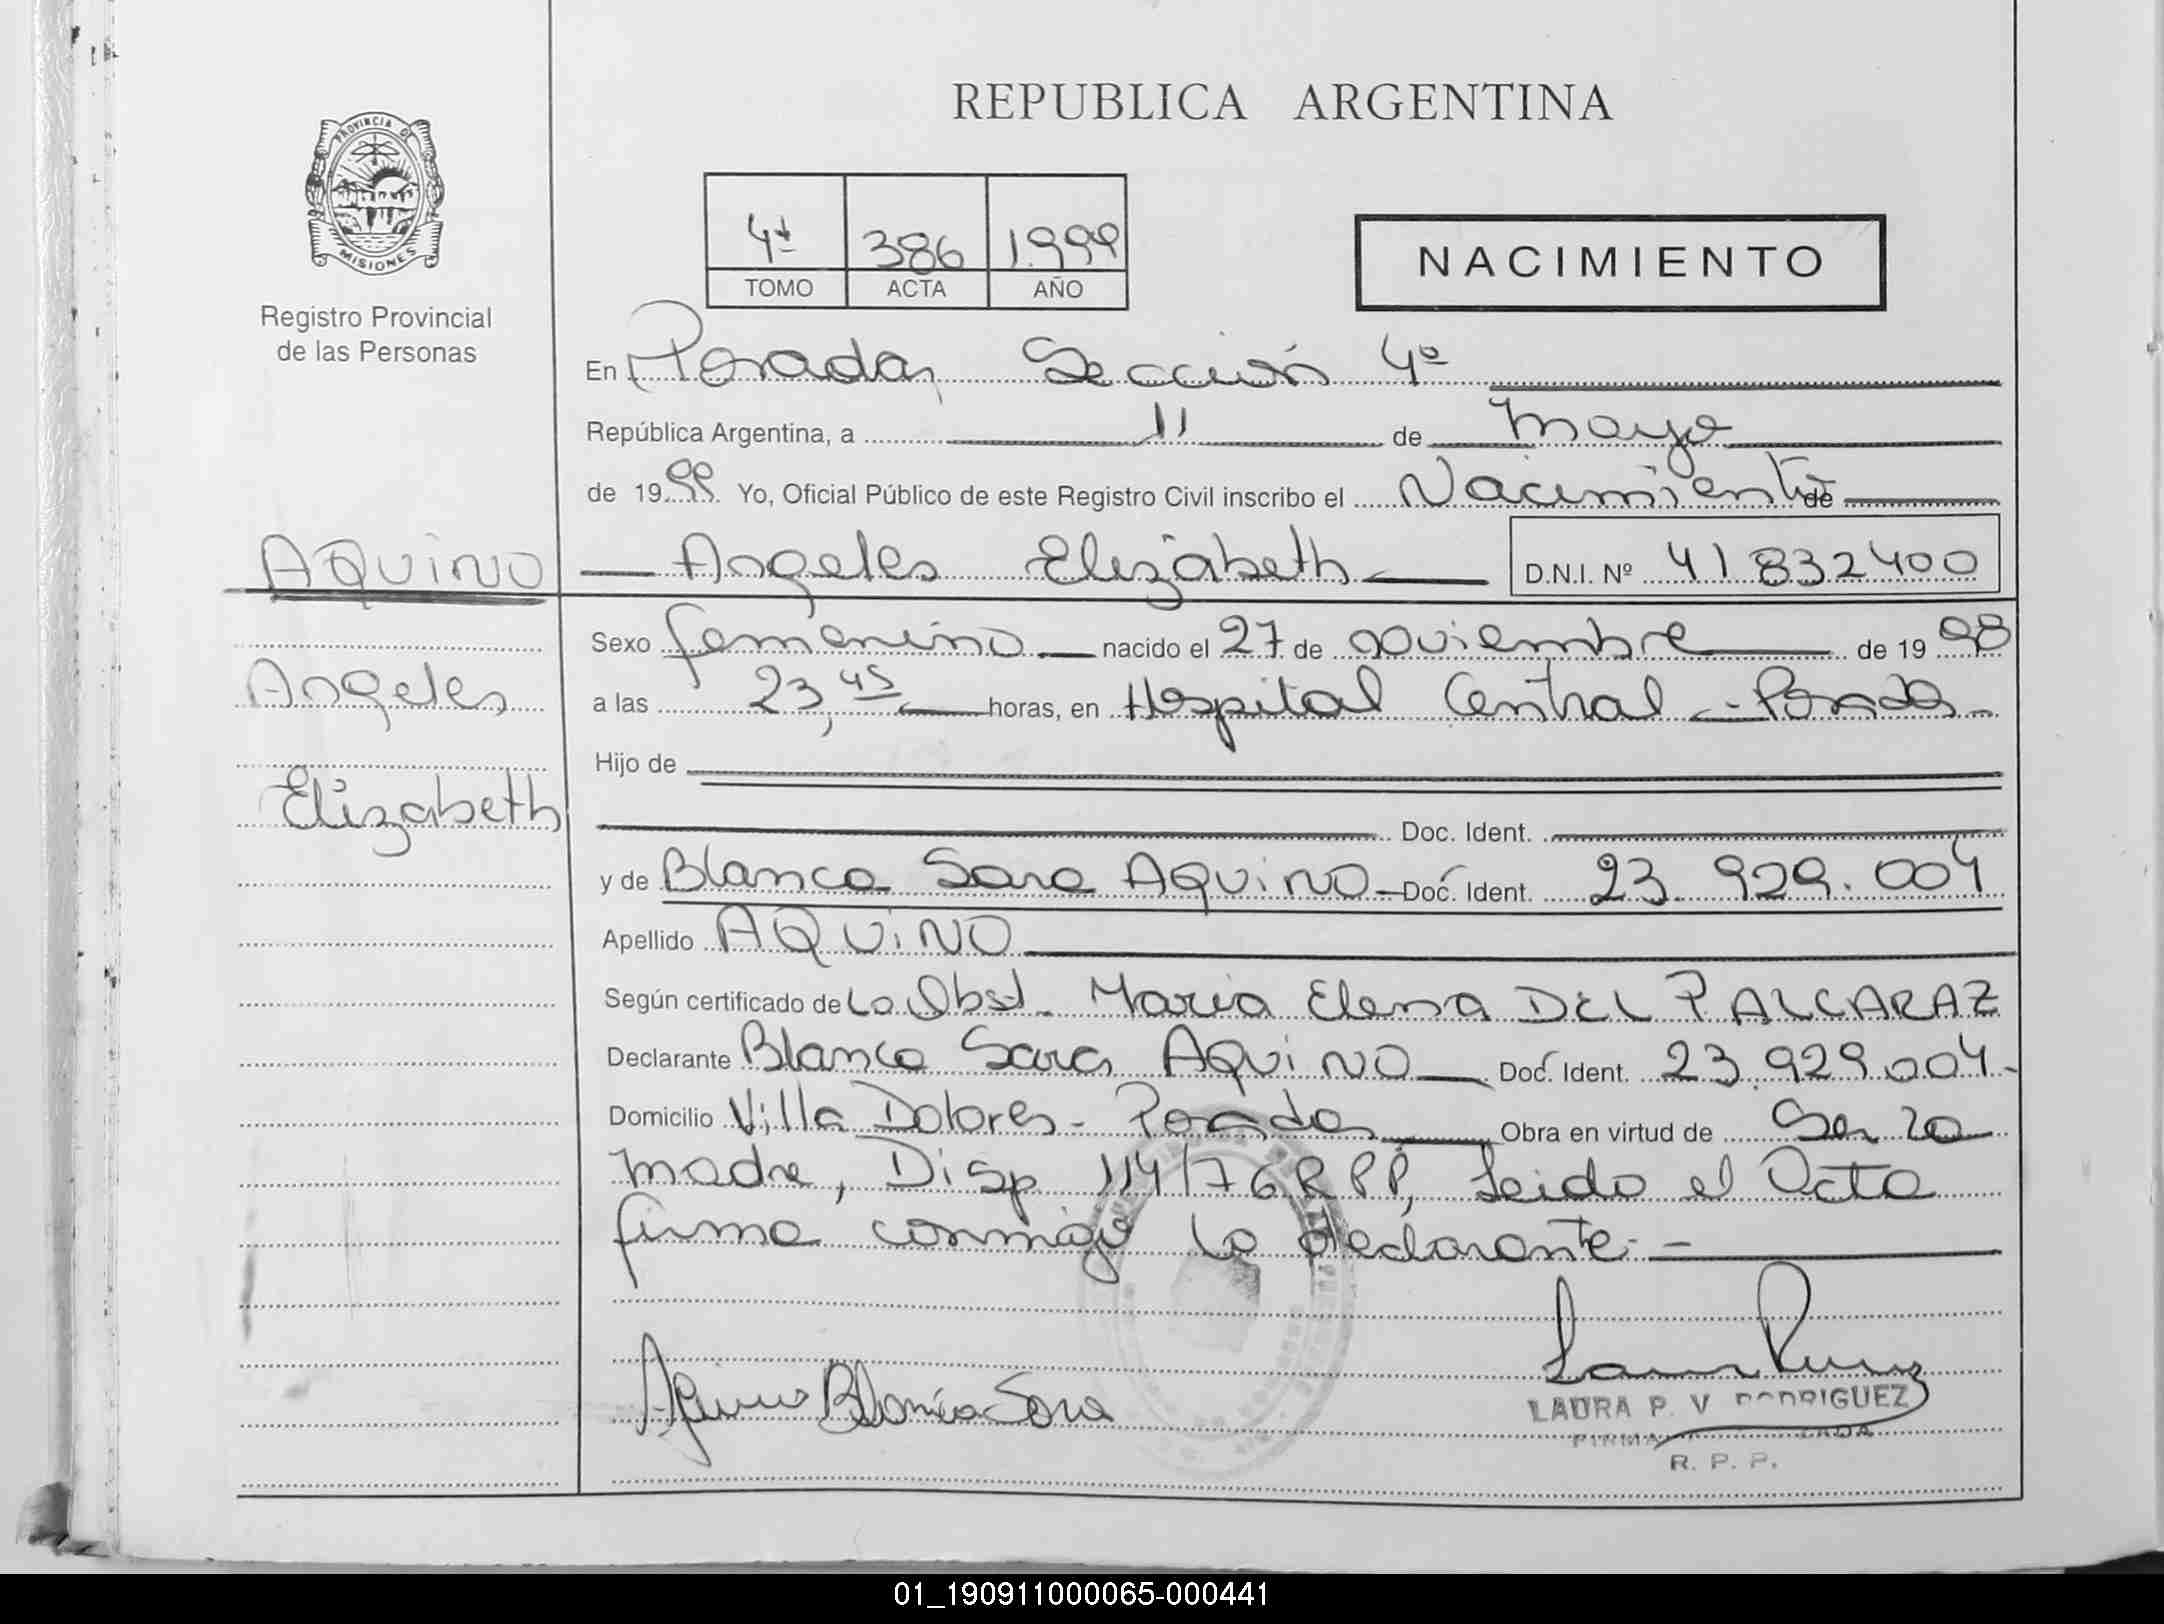 REPUBLICA ARGENTINA
PROVINCIA DE
MISIONES
Registro Provincial
de las Personas
4ª 386 1.999
TOMO ACTA AÑO
NACIMIENTO
En Posadas, Sección 4º
República Argentina, a 11 de mayo
de 1999 Yo, Oficial Público de este Registro Civil inscribo el Nacimiento de
AQUINO
Angeles Elizabeth D.N.I. Nº 41832400
Angeles
Elizabeth
Sexo femenino nacido el 27 de noviembre de 1998
a las 23,45 horas, en Hospital Central - Posadas-
Hijo de
Doc. Ident.
y de Blanca Sara AQUINO Doc. Ident. 23.929.004
Apellido AQUINO
Según certificado de La Obst. Maria Elena DEL P ALCARAZ
Declarante Blanca Sara AQUINO Doc. Ident. 23.929.004-
Domicilio Villa Dolores- Posadas Obra en virtud de Ser la
madre, Disp 114/76 RPP, Leido el Acta
firma conmigo la declarante.-
Aquino Blanca Sara
LAURA P. V RODRIGUEZ
FIRMA
R. P. P.
01_190911000065-000441